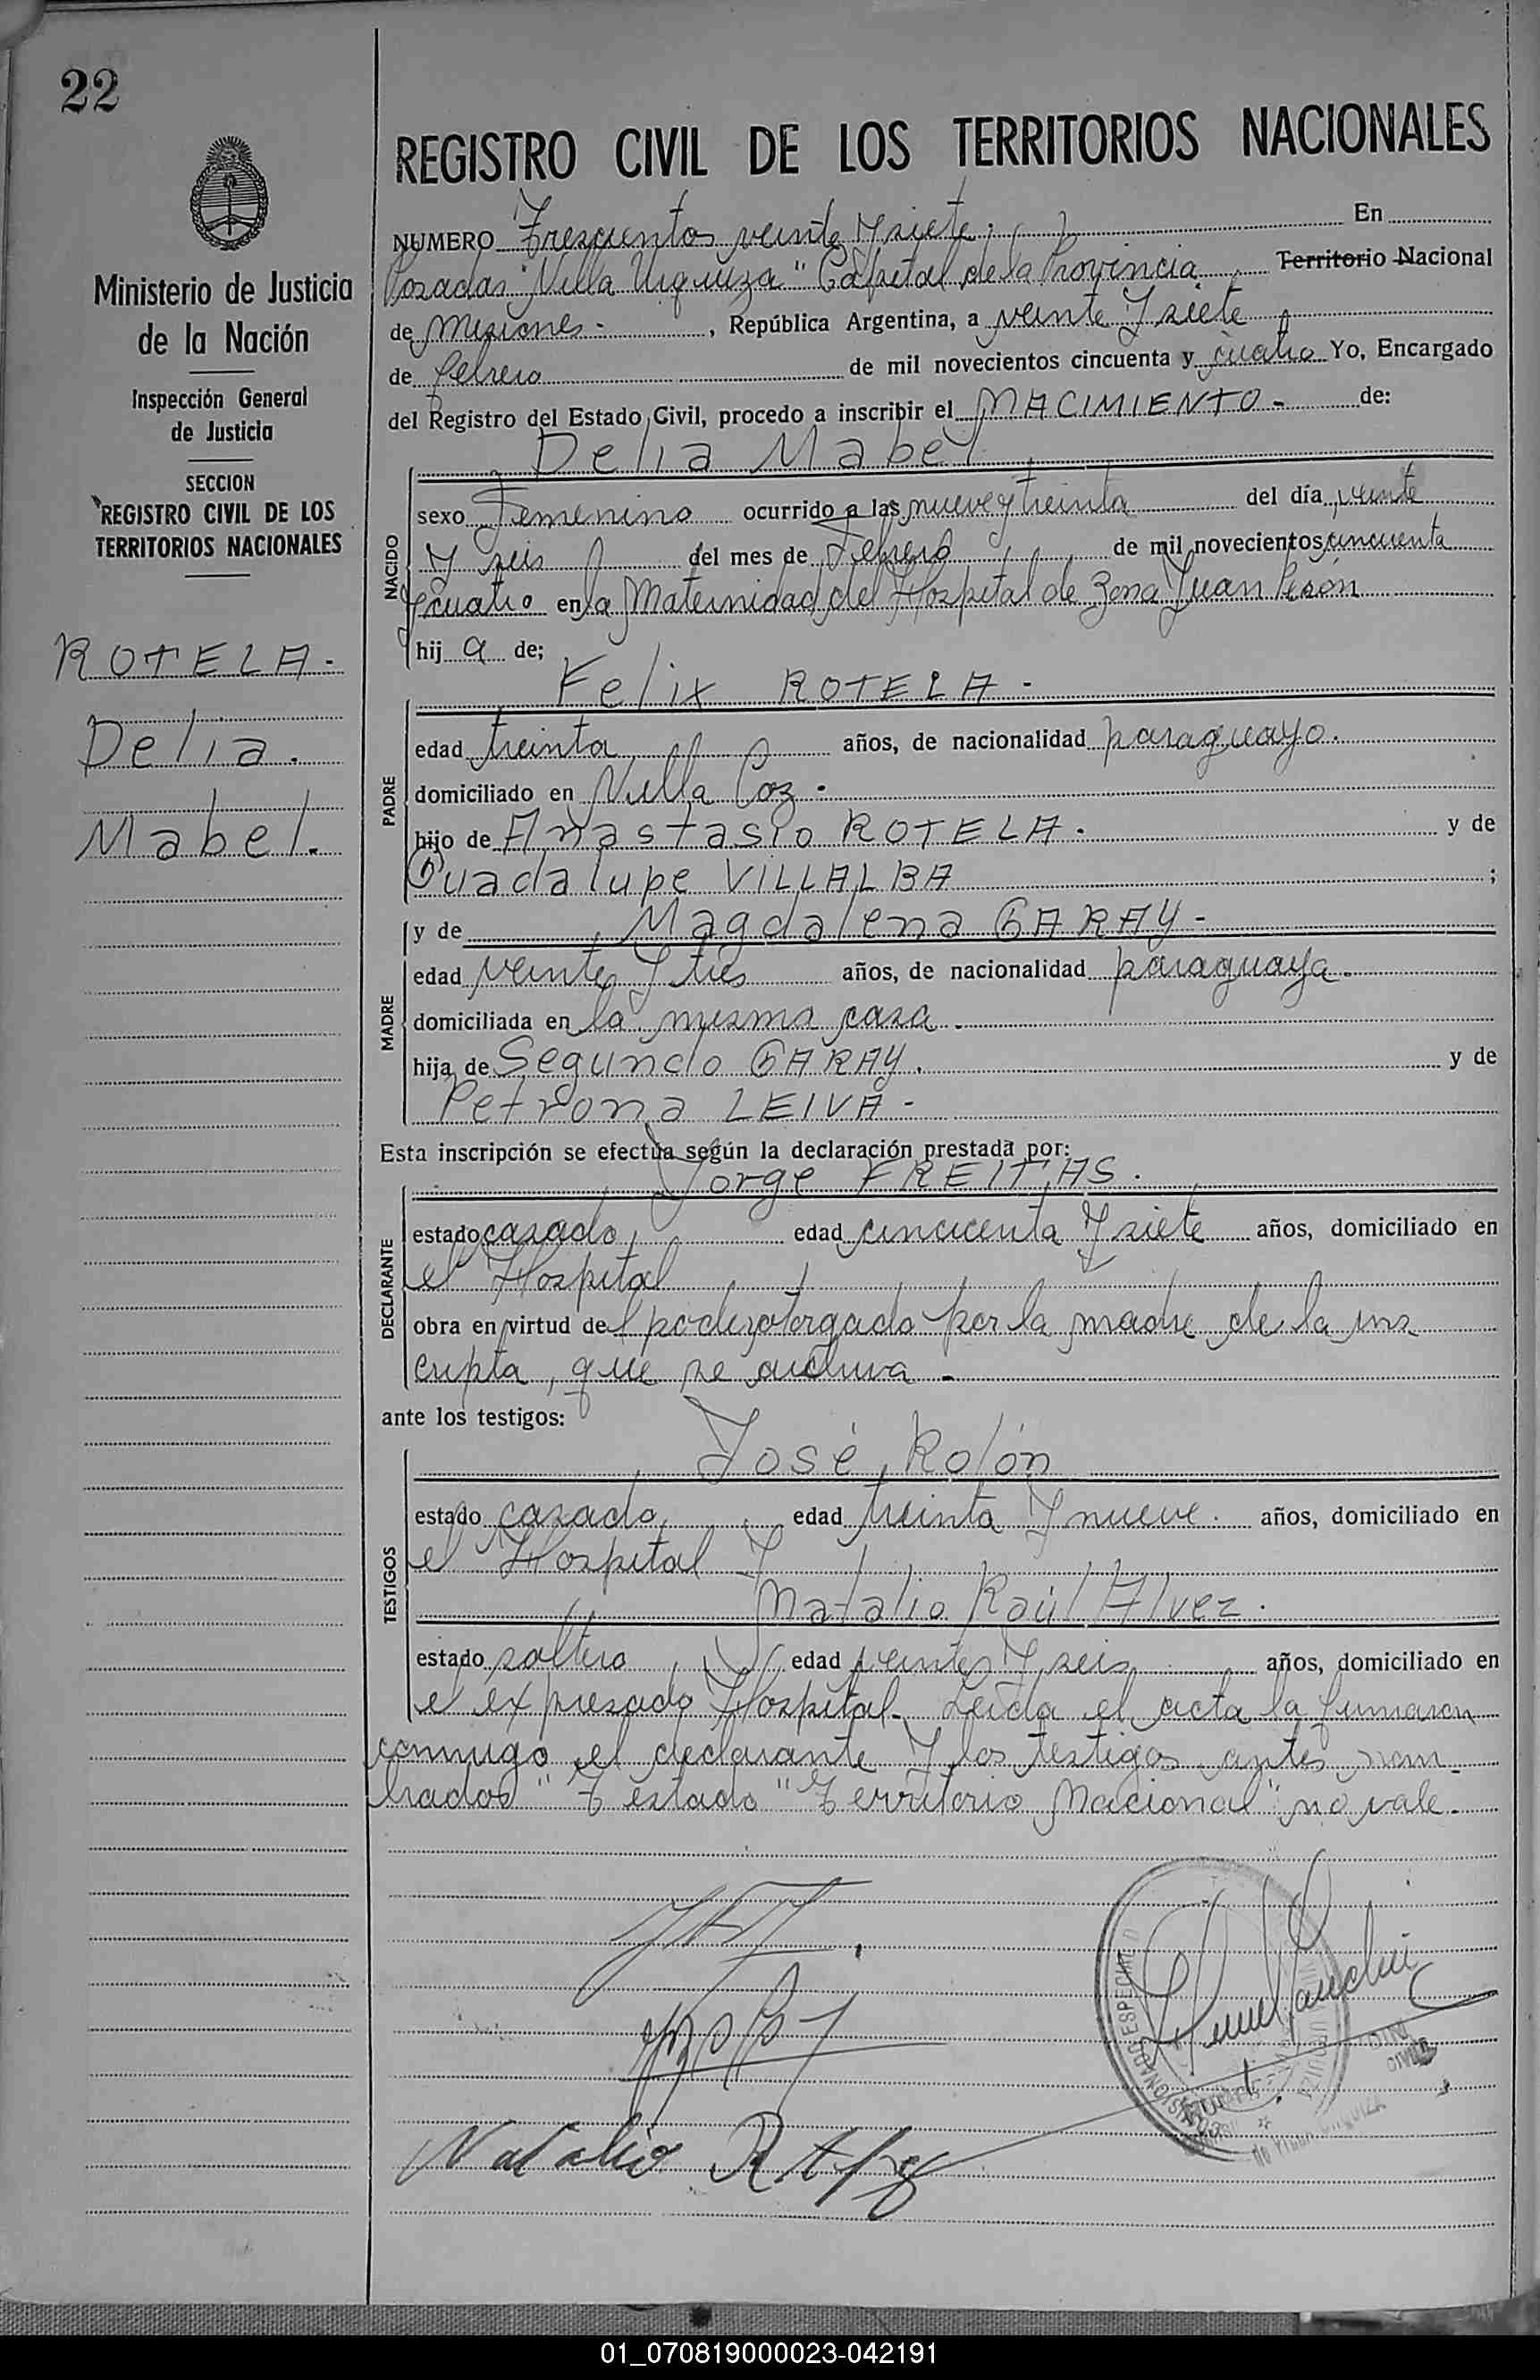 22
Ministerio de Justicia
de la Nación
Inspección General
de Justicia
SECCION
REGISTRO CIVIL DE LOS
TERRITORIOS NACIONALES
ROTELA-
Delia.
Mabel.
REGISTRO CIVIL DE LOS TERRITORIOS NACIONALES
NUMERO Trescientos veinte Y siete. En
Posadas "Villa Urquiza" Capital de la Provincia Territorio Nacional
de Misiones- , República Argentina, a veinte Y siete
de febrero de mil novecientos cincuenta y cuatro Yo, Encargado
del Registro del Estado Civil, procedo a inscribir el NACIMIENTO- de:
Delia Mabel
NACIDO
sexo Femenino ocurrido a las nueve y treinta del día veinte
Y seis del mes de Febrero de mil novecientos cincuenta
Y cuatro en la Maternidad del Hospital de Zona Juan Perón
hij a de;
Felix ROTELA-
PADRE
edad treinta años, de nacionalidad paraguayo.
domiciliado en Villa Coz.
hijo de Anastasio ROTELA. y de
Guadalupe VILLALBA ;
y de Magdalena GARAY-
MADRE
edad veinte Y tres años, de nacionalidad paraguaya-
domiciliada en la misma casa.
hija de Segundo GARAY. y de
Petrona LEIVA-
Esta inscripción se efectúa según la declaración prestada por:
Jorge FREITAS.
DECLARANTE
estado casado edad cincuenta Y siete años, domiciliado en
el Hospital
obra en virtud del poder otorgado por la madre de la ins
cripta, que se archiva-
ante los testigos:
José Rolón
TESTIGOS
estado casado edad treinta Y nueve. años, domiciliado en
el Hospital Y
Natalio Raúl Alvez.
estado soltero edad veinte Y seis años, domiciliado en
el expresado Hospital- Leida el acta la firmaron
conmigo el declarante Y los testigos antes nom-
brados "Testado "Territorio Nacional" no vale-
Natalio R Alvez
01_070819000023-042191